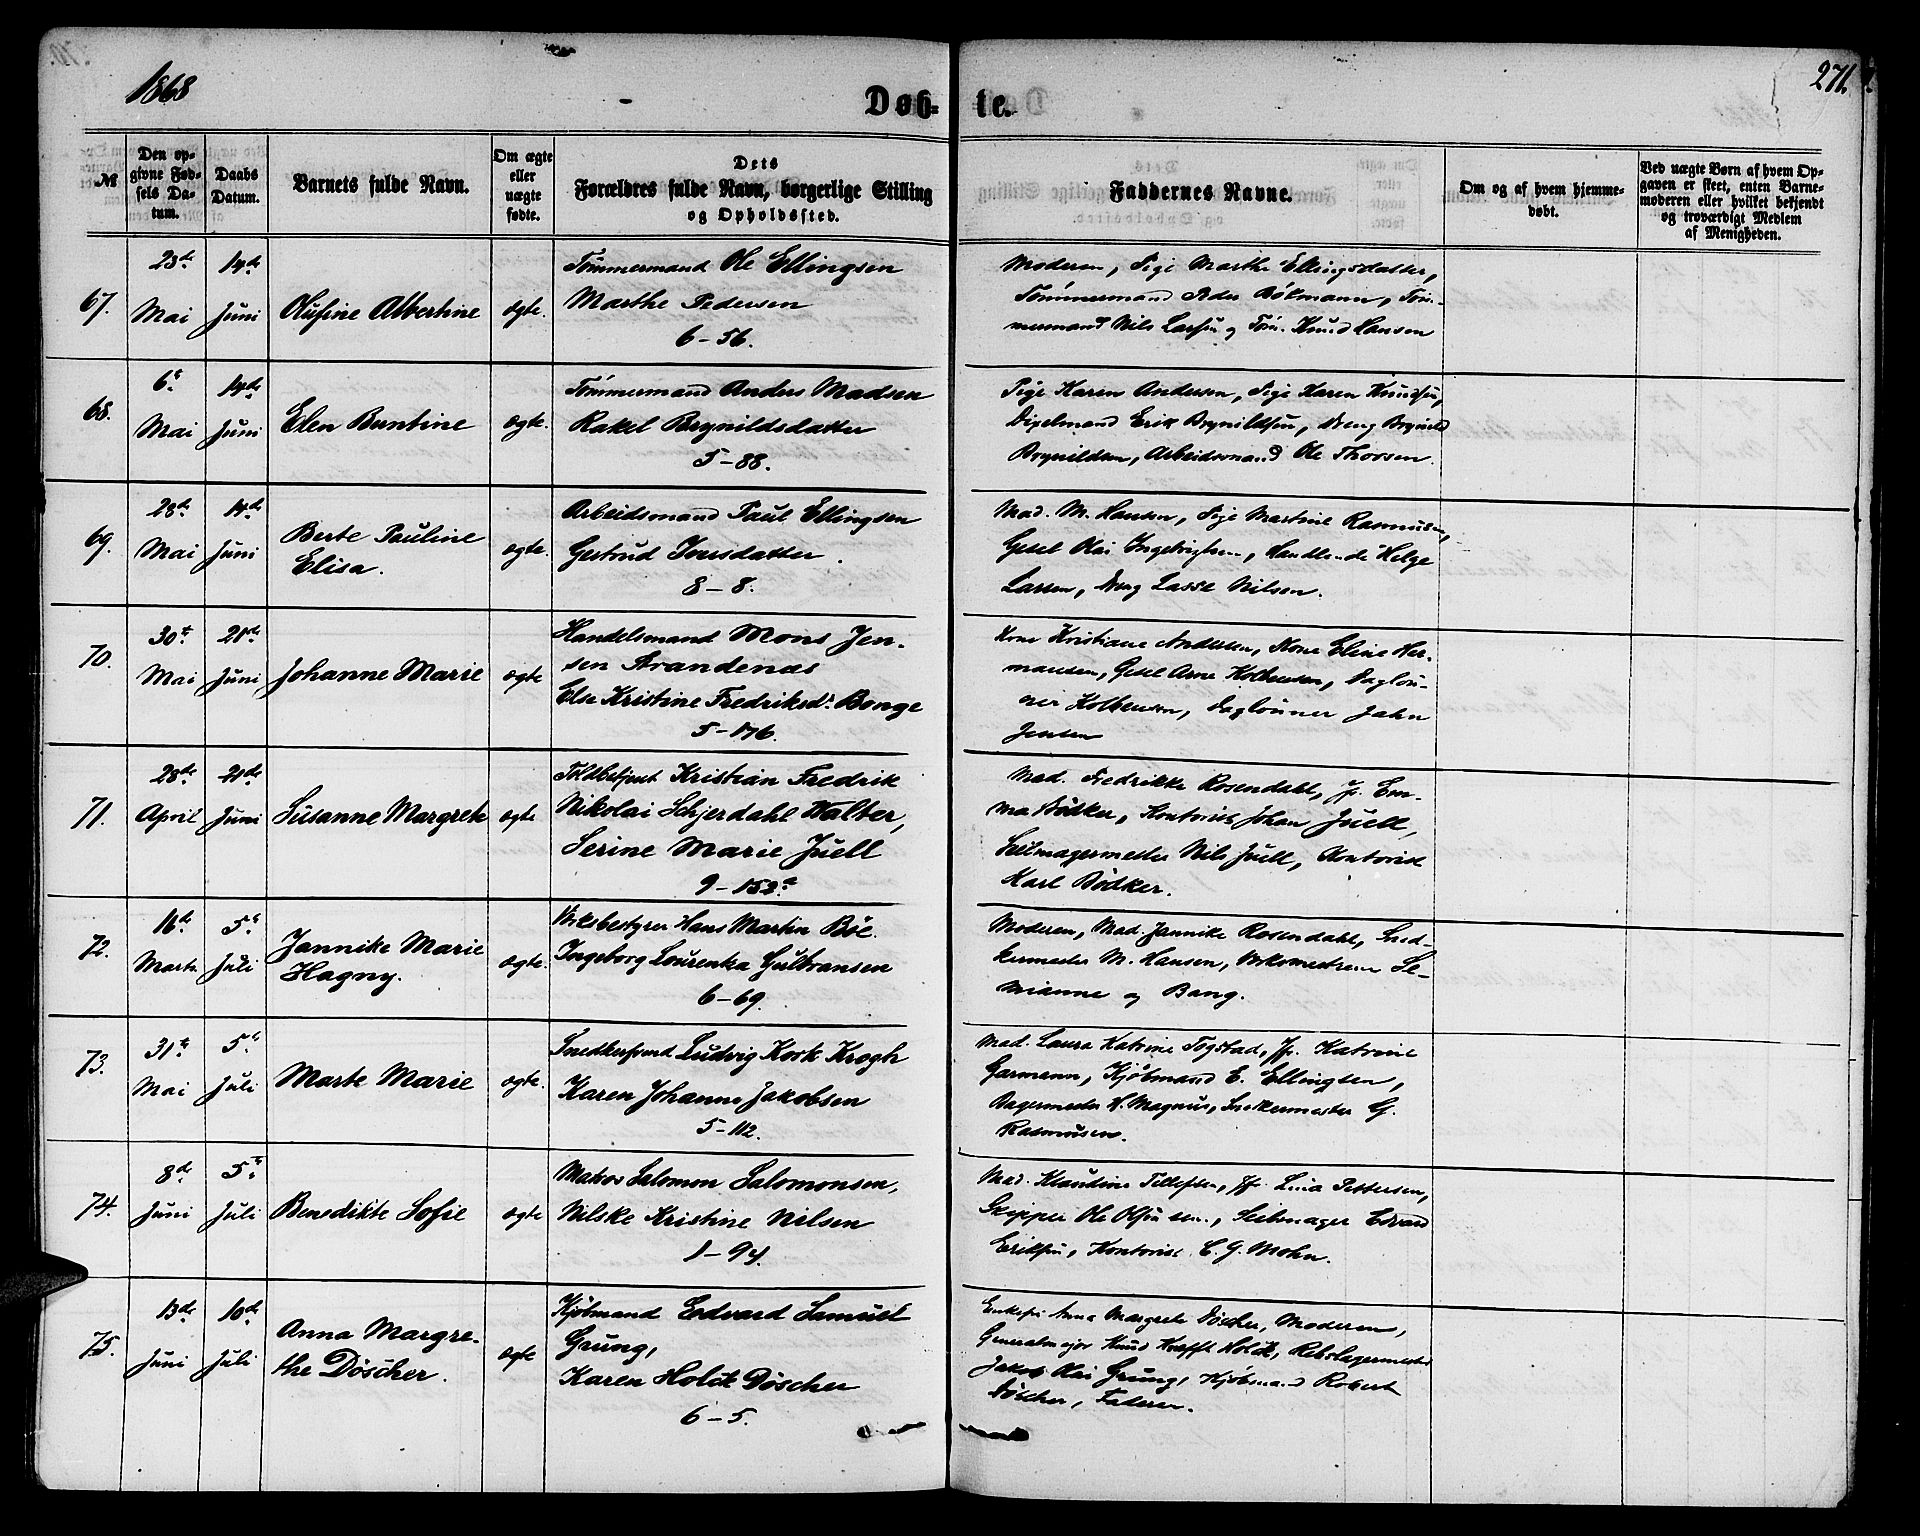 1868
271.
Døbte.
№
Den opgivne Fødsels Datum.
Daabs Datum.
Barnets fulde Navn.
Om ægte eller uægte fødte.
Dets Forældres fulde Navn, borgerlige Stilling og Opholdssted.
Faddernes Navne.
Om og af hvem hjemmedøbt.
Ved uægte Børn af hvem Opgaven er skeet, enten Barnemoderen eller hvilket bekjendt og troværdigt Medlem af Menigheden.
67.
23de Mai
14de Juni
Olufine Albertine
ægte.
Tømmermand Ole Ellingsen
Marthe Pedersen
6-56.
Moderen, Pige Marthe Ellingsdatter,
Tømmermand Peder Bökmann, Tøm-
mermand Nils Larsen og Tøm. Knud Hansen
68.
6te Mai
14de Juni
Elen Buntine
ægte.
Tømmermand Anders Madsen
Rakel Brynildsdatter
5-88.
Pige Karen Andersen, Pige Karen Knudsen,
Erik Brynildsen, Dreng Brynild
Brynildsen, Arbeidsmand Ole Thorsen.
69.
28de Mai
14de Juni
Berte Pauline
Elisa.
ægte.
Arbeidsmand Paul Ellingsen
Gertrud Iversdatter.
8-8.
Mad. M. Hansen, Pige Martine Rasmusen,
Gesel Olai Ingebrigtsen, Handlende Helge
Larsen, Dreng Lasse Nilsen.
70.
30te Mai
21de Juni
Johanne Marie
ægte
Handelsmand Mons Jen-
sen Strandenæs
Else Kristine Fredriksd. Bonge
5-176.
Kone Kristiane Andersen, Kone Eline Her-
mansen, Gesel Arne Kolbensen, Dagløn-
ner Kolbensen, Daglønner John
Jensen
71.
28de April
21de Juni
Susanne Margrete
ægte
Toldbetjent Kristian Fredrik
Nikolai Schjerdahl Walter,
Serine Marie Juell
9-152a
Mad. Fredrikke Rosendahl, Jfr. Em-
ma Bödker, Kontorist Johan Juell,
Seilmagermester Nils Juell, Kontorist
Karl Bödker.
72.
16de Marts
5te Juli
Jannike Marie
Hagny.
ægte.
Hans Martin Böe.
Ingeborg Lourenka Gulbransen
6-69.
Moderen, Mad. Jannike Rosendahl, Sned-
kermester M. Hansen, Se-
mianne og Bang.
73.
31te Mai
5te Juli
Marte Marie
ægte.
Snedkersvend Ludvig Kork Krogh
Karen Johanne Jakobsen
5-112.
Mad. Laura Katrine Togstad, Jfr. Katrine
Garmann, Kjøbmand E. Ellingsen,
Bagermester H. Magnus, Snekermester G.
Rasmusen.
74.
8de Juni
5te Juli
Benedikte Sofie
ægte
Matros Salomon Salomonsen,
Nilske Kristine Nilsen
1-94.
Mad. Klaudine Tellefsen, Jfr. Lina Pettersen,
Skipper Ole Olsen, Seilmager Edvard
Eriksen, Kontorist C. G. Mohn.
75.
13de Juni
10de Juli
Anna Margre-
the Döscher.
ægte
Kjøbmand Endvard Samuel
Grung,
Karen Holck Döscher
6-5.
Enkefru Anna Margrete Döscher, Moderen,
Generalmajor Knud Krafft Holck, Rebslagermester
Jakob Olai Grung, Kjøbmand Robert
Döscher, Faderen.